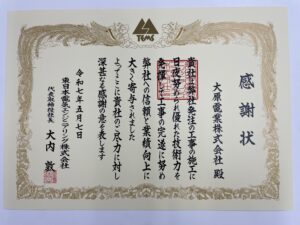 TEMS
感謝状
大原電業株式会社 殿
貴社は弊社発注の工事の施工に
日夜努められ優れた技術力を
発揮して工事の完遂に努め
弊社への信頼と業績向上に
大きく寄与されました
よってここに貴社のご尽力に対し
深甚なる感謝の意を表します
令和七年五月七日
東日本電気エンジニアリング株式会社
代表取締役社長 大内 敦